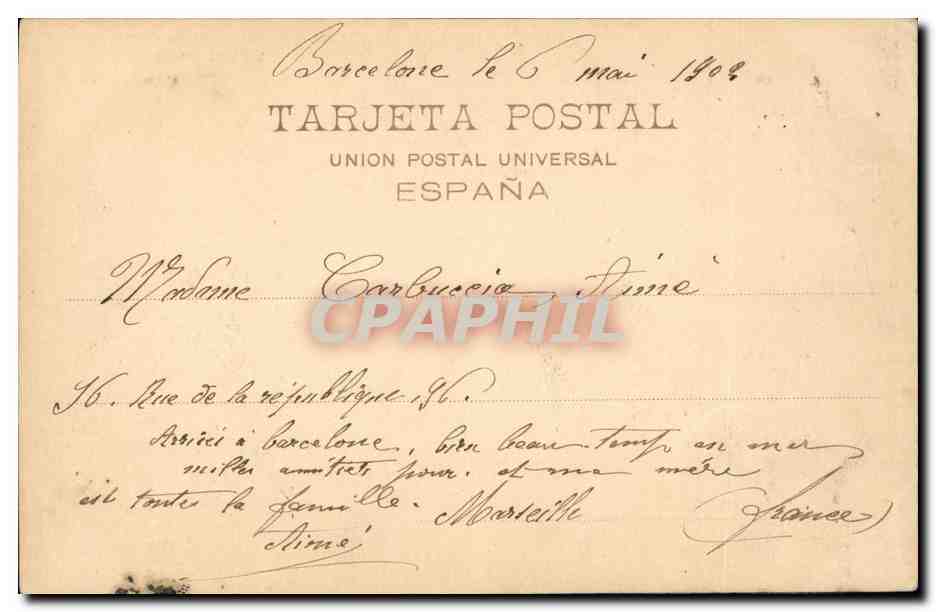 Barcelone le 6 mai 1902
TARJETA POSTAL
UNION POSTAL UNIVERSAL
ESPAÑA
Madame Carbuccia Aimé
CPAPHIL
96. Rue de la république 96.
Arrivés à barcelone, bien beau temp en mer
milles amitiés pour. et ma mére
est toutes la famille. Marseille (france)
Aimé